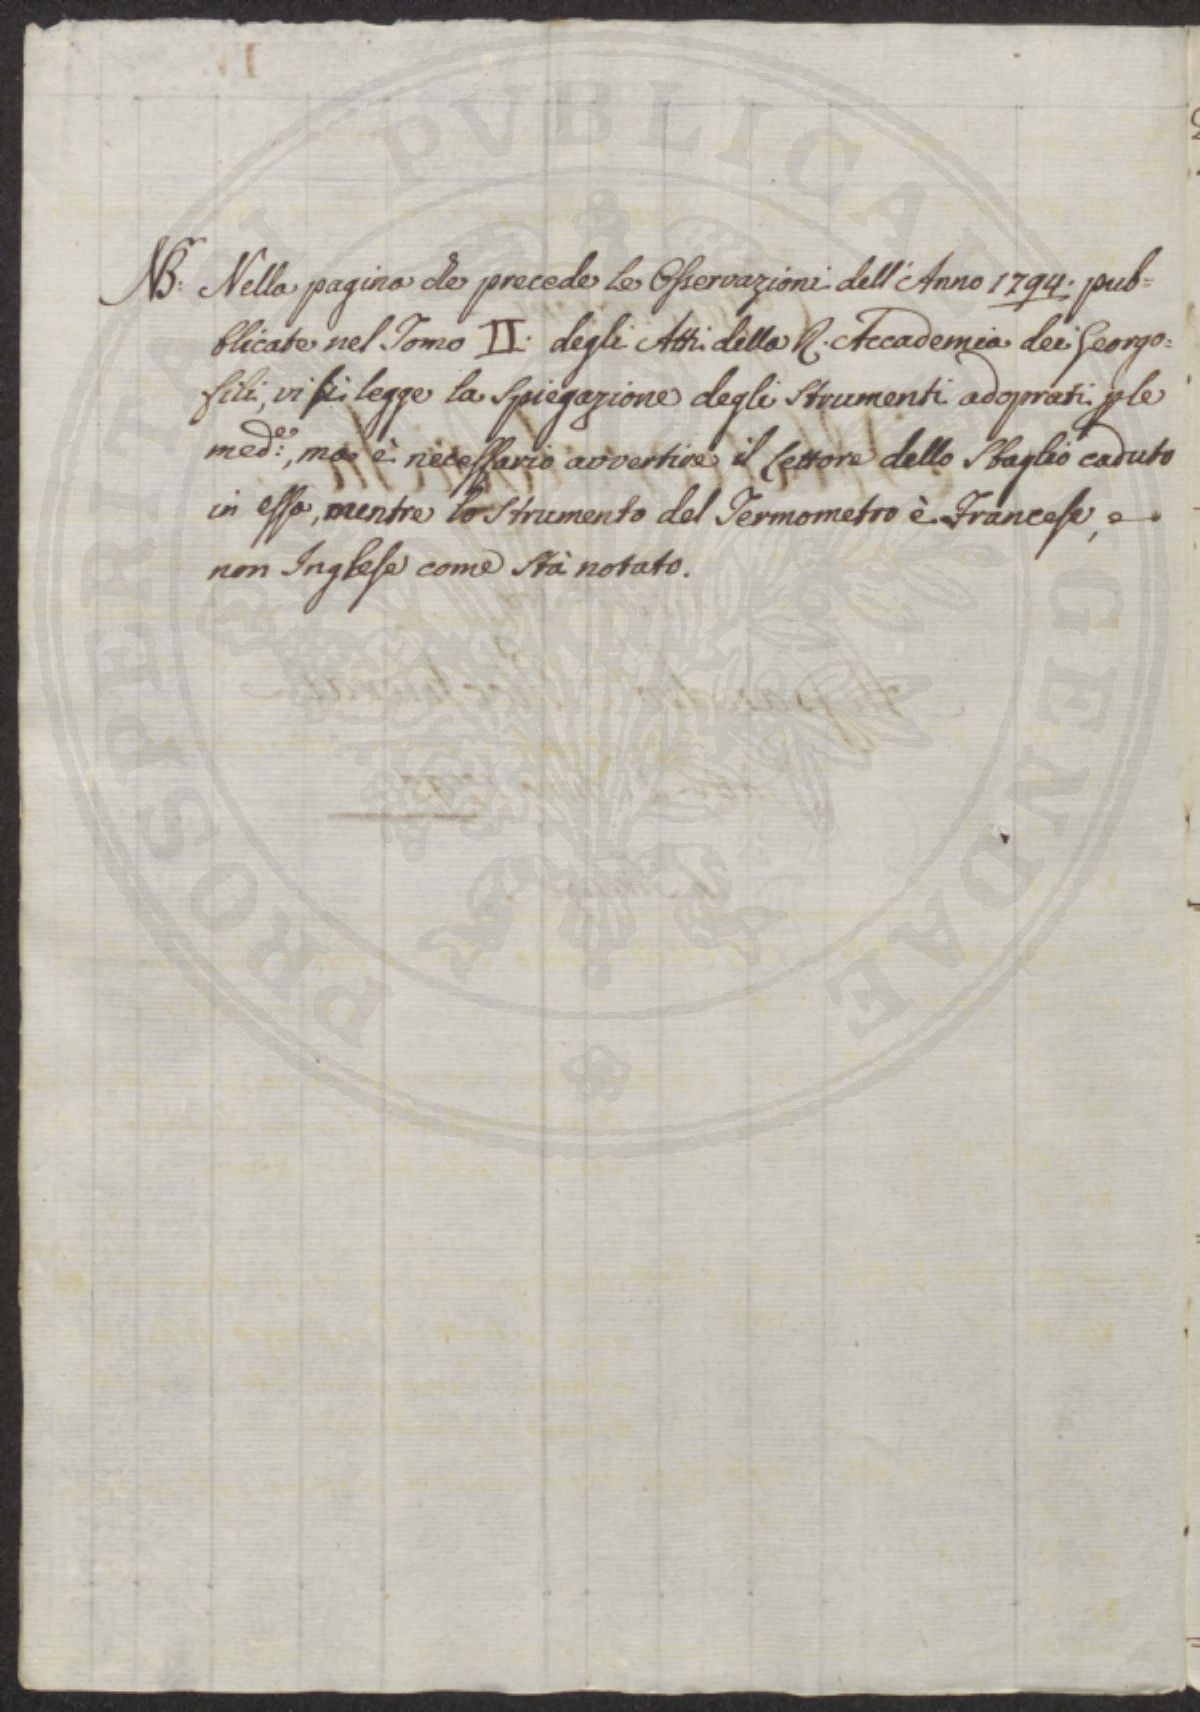 NB: Nella pagina che precede le Osservazioni dell'Anno 1794. pub=
blicate nel Tomo II. degli Atti della R. Accademia dei Georgo=
fili, vi si legge la Spiegazione degli Strumenti adoprati p le
med:e, ma è necessario avvertire il Lettore dello Sbaglio caduto
in essa, mentre lo Strumento del Termometro è Francese, e
non Inglese come stà notato.
PROSPERITATI PUBLICAE AUGENDAE